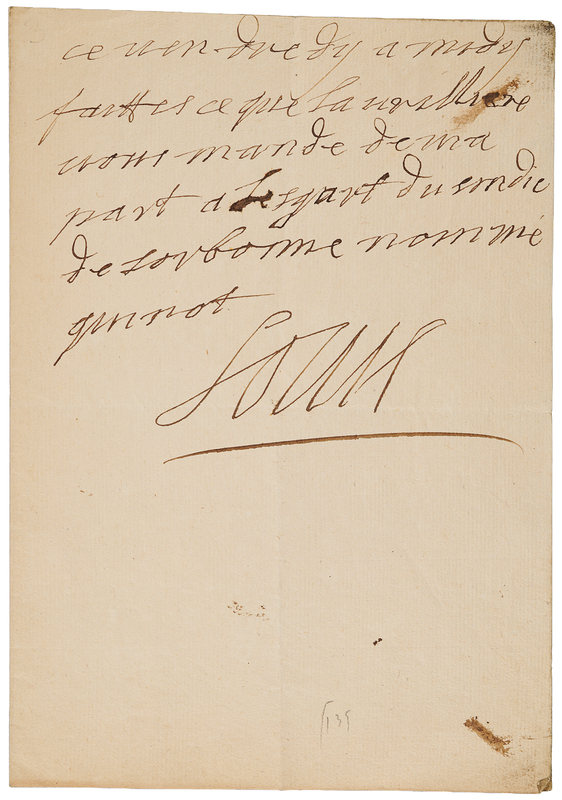 ce uendredy a midy
faittes ce que la urilliere
uous mande de ma
part a lesgart du sindic
de sorbonne nommé
quinot
Louis
139